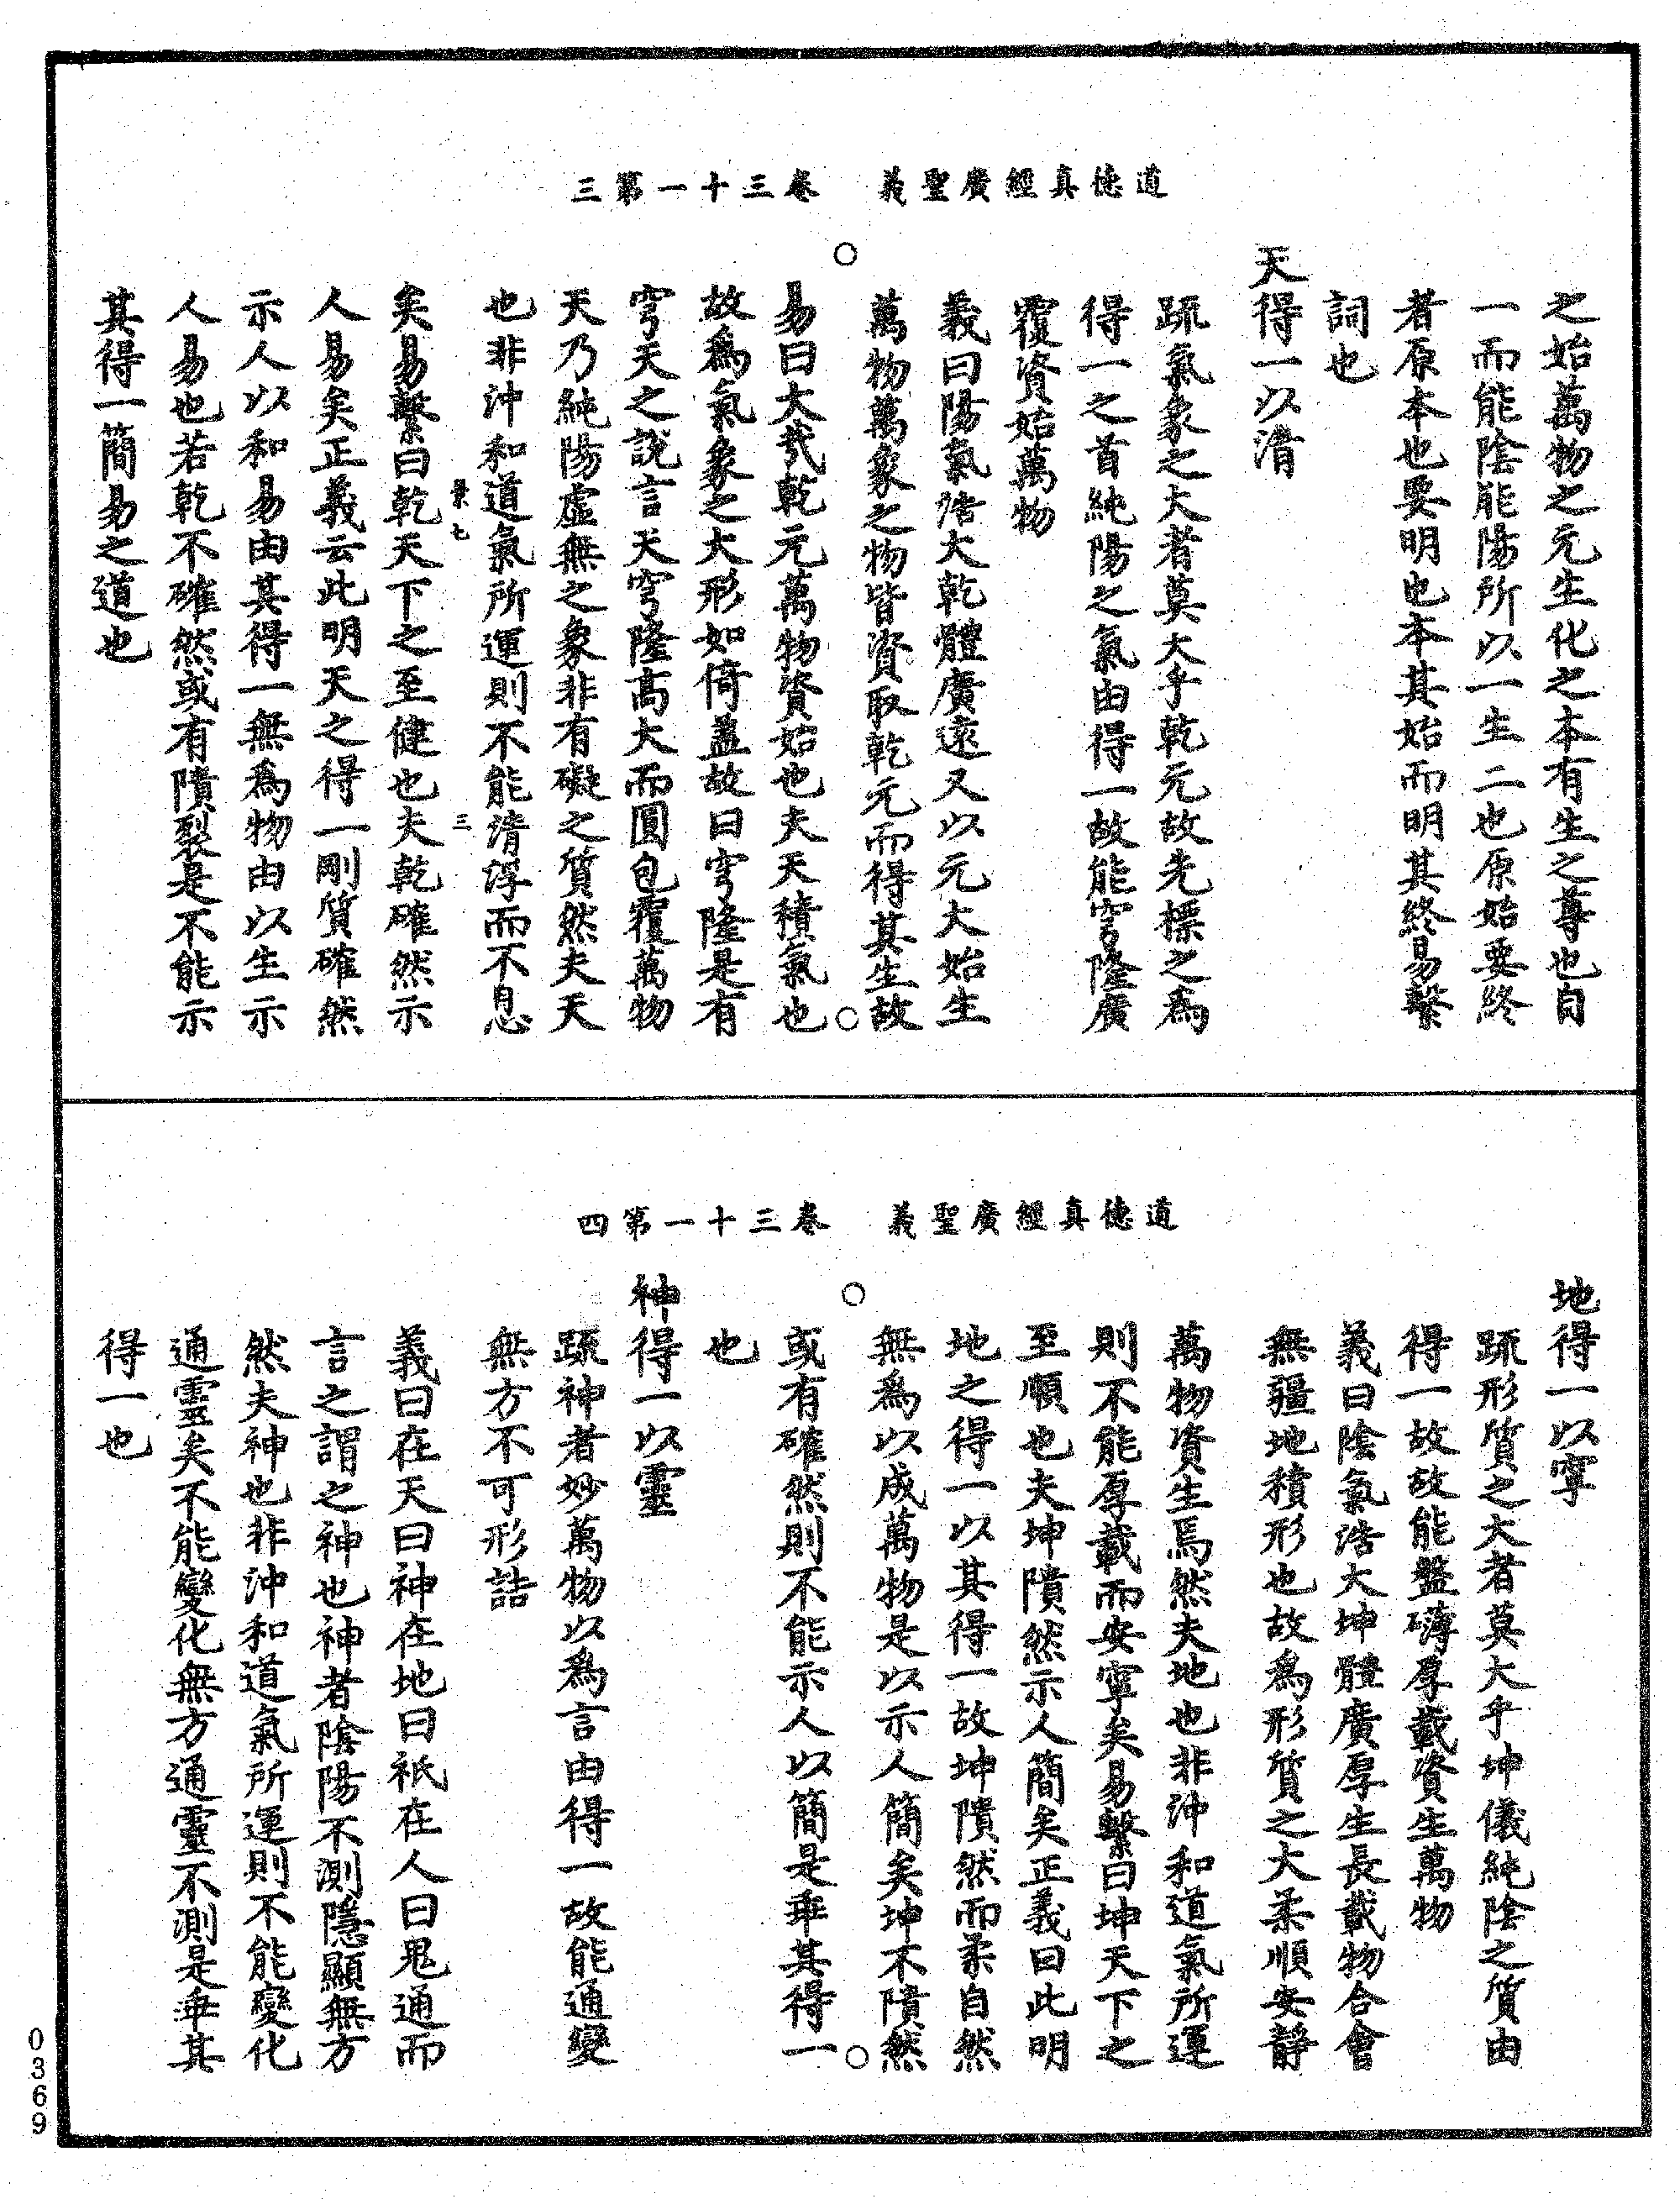 道德真經廣聖義　卷三十一第三
之始萬物之元生化之本有生之尊也自
一而能陰能陽所以一生二也原始要終
者原本也要明也本其始而明其終易繫
詞也
天得一以清
疏氣象之大者莫大乎乾元故先標之為
得一之首純陽之氣由得一故能穹隆廣
覆資始萬物
義曰陽氣浩大乾體廣遠又以元大始生
萬物萬象之物皆資取乾元而得其生故
易曰大哉乾元萬物資始也夫天積氣也
故為氣象之大形如倚蓋故曰穹隆是有
穹天之說言天穹隆高大而圓包覆萬物
天乃純陽虛無之象非有礙之質然夫天
也非沖和道氣所運則不能清浮而不息
矣易繫曰乾天下之至健也夫乾確然示
人易矣正義云此明天之得一剛質確然
示人以和易由其得一無為物由以生示
人易也若乾不確然或有隤裂是不能示
其得一簡易之道也
道德真經廣聖義　卷三十一第四
地得一以寧
疏形質之大者莫大乎坤儀純陰之質由
得一故故能盤礴厚載資生萬物
義曰陰氣浩大坤體廣厚生長載物合會
無疆地積形也故為形質之大柔順安靜
萬物資生焉然夫地也非沖和道氣所運
則不能厚載而安寧矣易繫曰坤天下之
至順也夫坤隤然示人簡矣正義曰此明
地之得一以其得一故坤隤然而柔自然
無為以成萬物是以示人簡矣坤不隤然
或有確然則不能示人以簡是乖其得一
也
神得一以靈
疏神者妙萬物以為言由得一故能通變
無方不可形詰
義曰在天曰神在地曰祇在人曰鬼通而
言之謂之神也神者陰陽不測隱顯無方
然夫神也非沖和道氣所運則不能變化
通靈矣不能變化無方通靈不測是乖其
得一也
0369